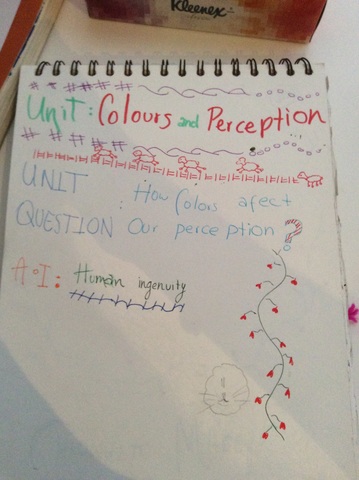 Kleenex
Unit: Colours and Perception
...
UNIT How Colors afect
QUESTION : Our perception?
A.O.I: Human ingenuity